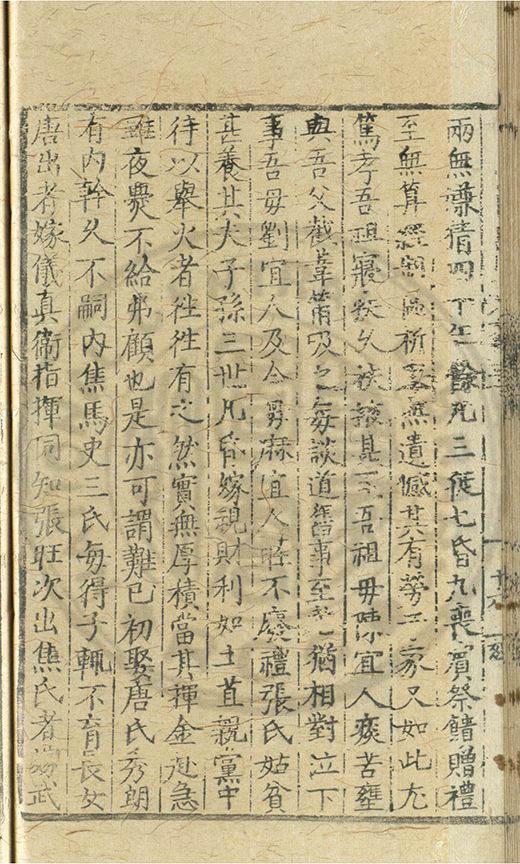 兩無嫌猜四十年餘凡三徙七昏九喪賓祭饋贈禮
至無算經制區析至無遺憾其有勞于家又如此尤
篤孝吾祖寢疾久被機見吾祖母陳宜人痰苦壅
與吾父截葦筩吸之每談道舊事至猶相對泣下
事吾母劉宜人及今男麻宜人皆不廢禮張氏姑貧
甚養其夫子孫三世凡昏嫁視財利如土苴親黨中
待以舉火者徃徃有之然實無厚積當其揮金赴急
雖夜爨不給弗顧也是亦可謂難已初娶唐氏秀朗
有內幹久不嗣內焦馬史三氏每得子輒不育長女
唐出者嫁儀真衛指揮同知張旺次出焦氏者嫁武
十六